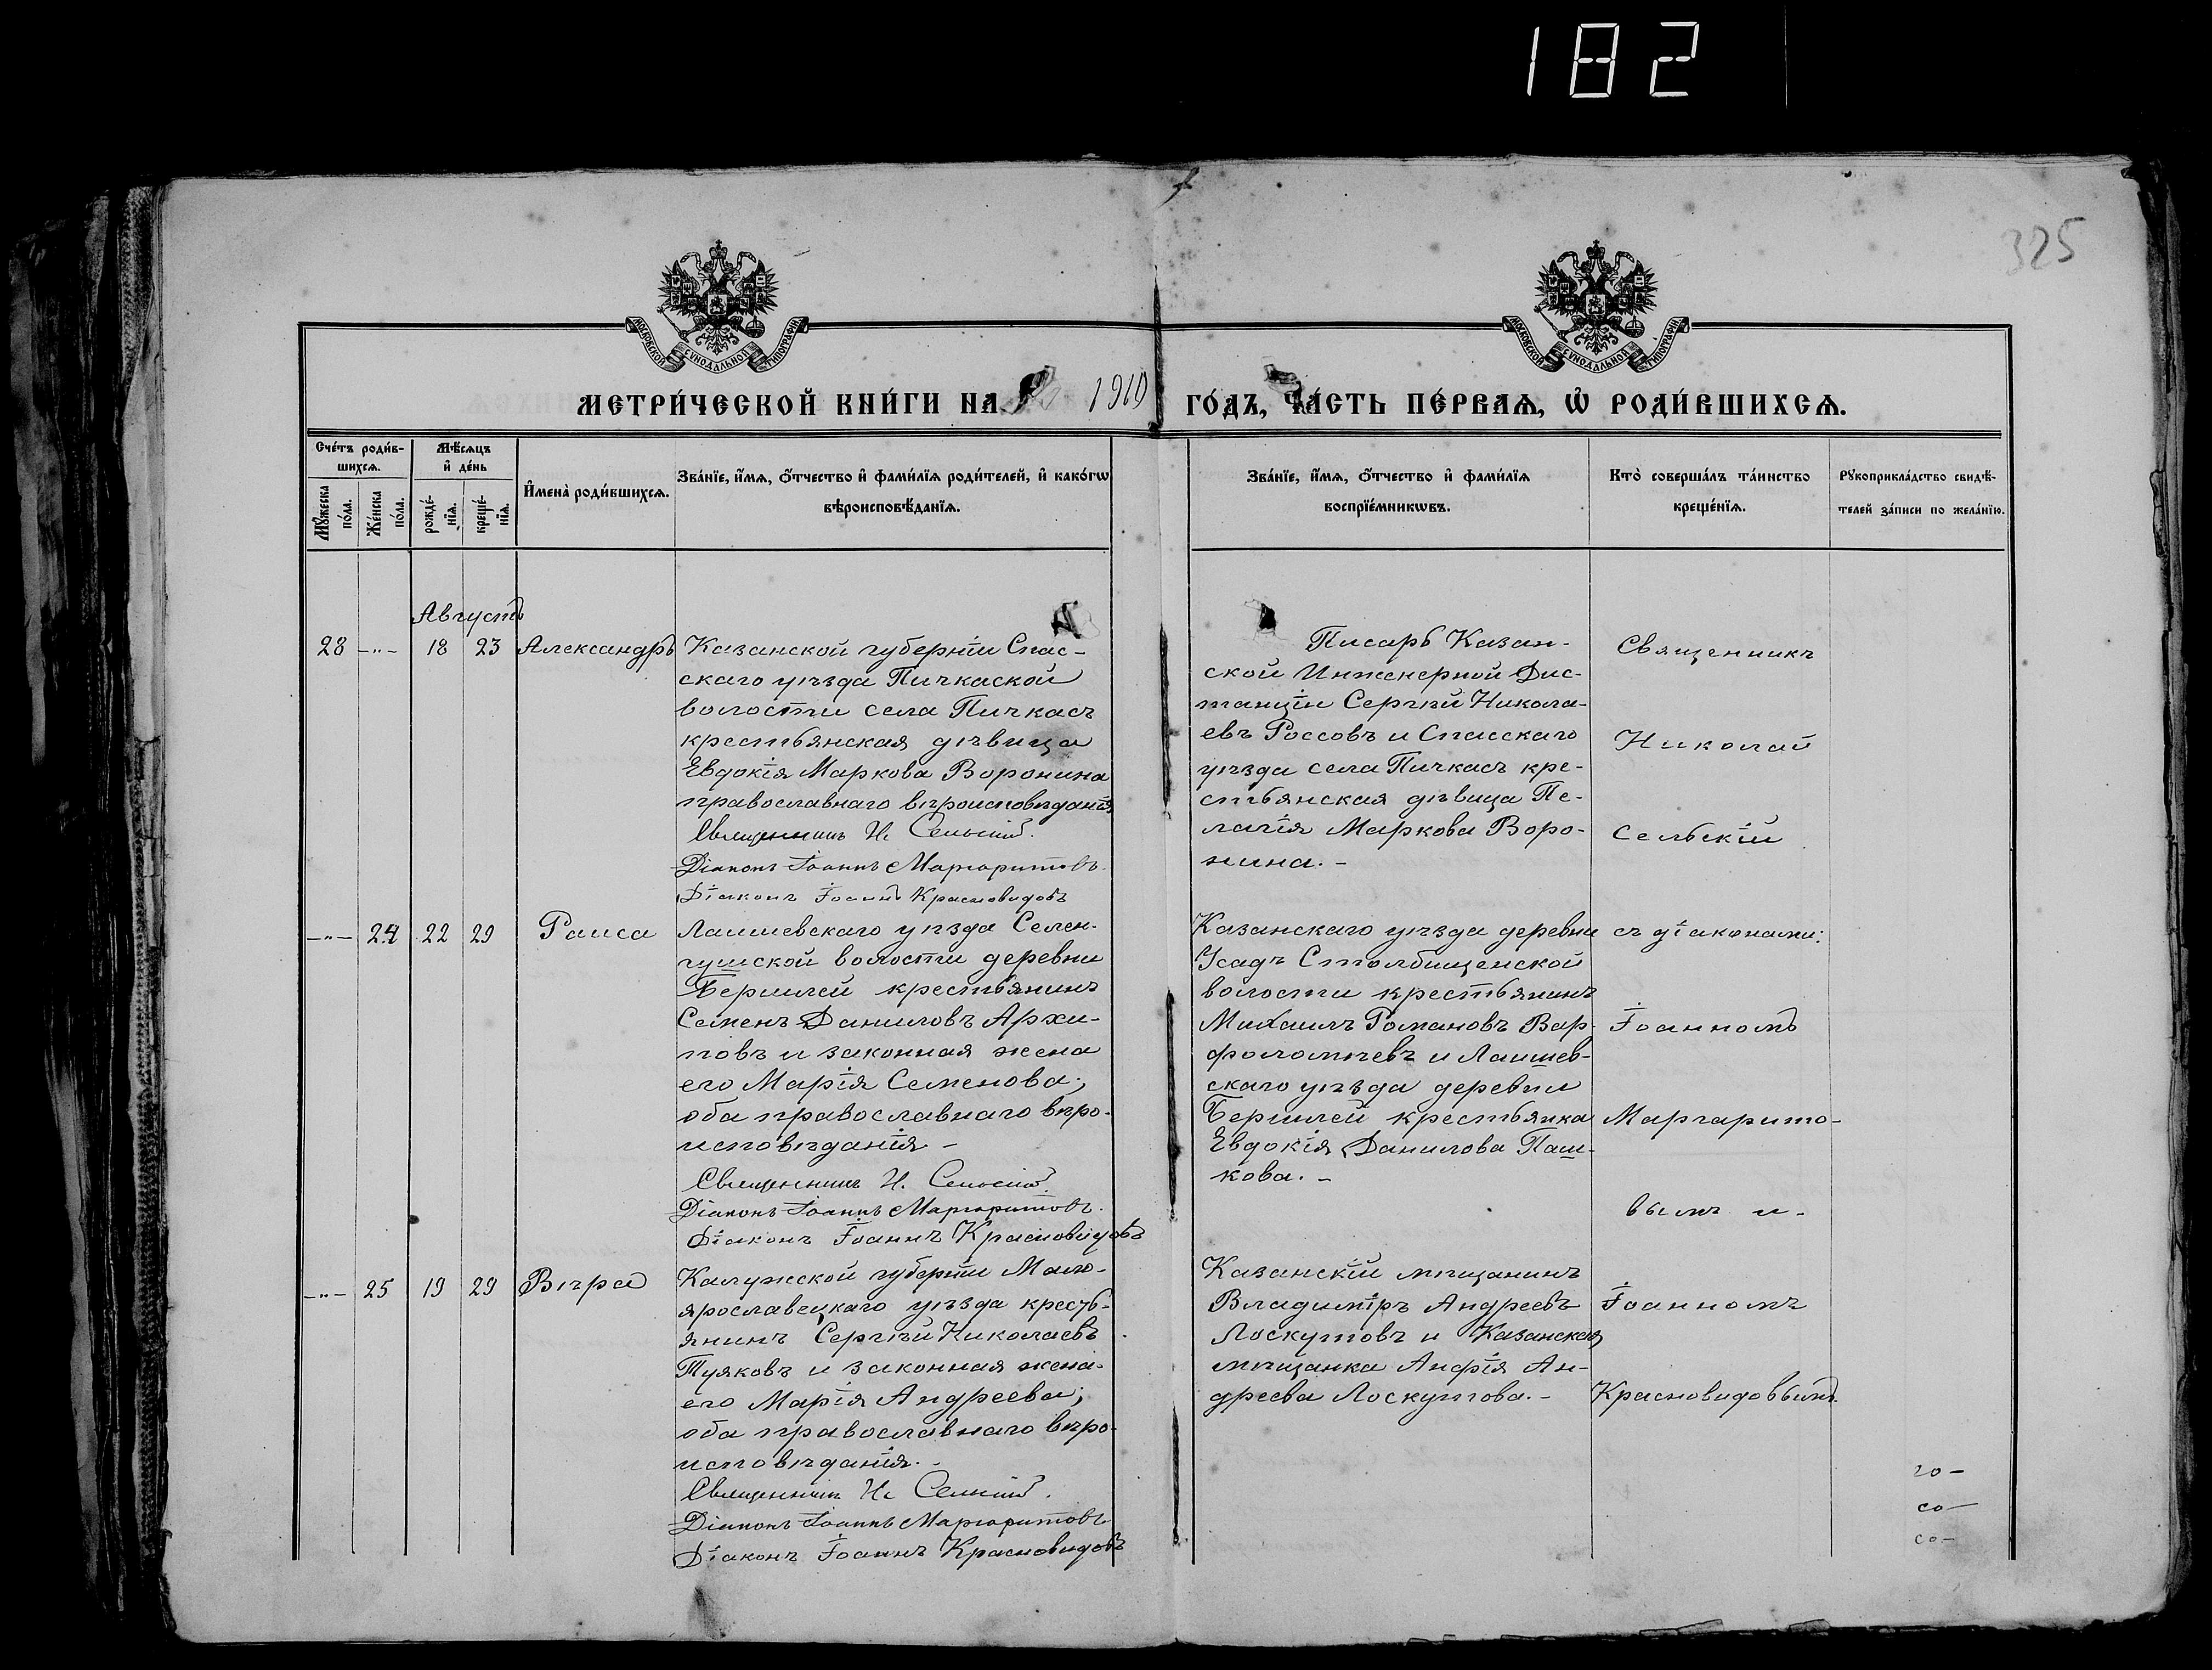 182
325
МОСКОВСКОЙ СУНОДАЛЬНОЙ ТИПОГРАФІИ
МОСКОВСКОЙ СУНОДАЛЬНОЙ ТИПОГРАФІИ
МЕТРИ́ЧЕСКОЙ КНИ́ГИ НА 1910 ГО́ДЪ, ЧА́СТЬ ПЕ́РВАѦ, Ѡ҆ РОДИ́ВШИХСѦ.
Сче́тъ роди́в-
шихсѧ.
Мꙋ́жеска по́ла.
Же́нска по́ла.
Мѣ́сѧцъ
и҆ де́нь
рожде́-
нїѧ.
креще́-
нїѧ.
И҆мена̀ роди́вшихсѧ.
Зва́нїе, и҆́мѧ, ѻ҆́тчество и҆ фами́лїѧ роди́телей, и҆ како́гѡ
вѣроисповѣ́данїѧ.
Зва́нїе, и҆́мѧ, ѻ҆́тчество и҆ фами́лїѧ
воспрїе́мникѡвъ.
Кто̀ соверша́лъ та́инство
креще́нїѧ.
Рꙋкоприкла́дство свидѣ́-
телей за́писи по жела́нїю.
Августъ
28 -"- 18 23 Александръ
Казанской губерніи Спас-
скаго уѣзда Пичкаской
волости села Пичкасъ
крестьянская дѣвица
Евдокія Маркова Воронина
православнаго вѣроисповѣданія
Священникъ Н. Сельскій.
Діаконъ Іоаннъ Маргаритовъ.
Діаконъ Іоаннъ Красновидовъ
Писарь Казан-
ской Инженерной Дис-
танціи Сергѣй Никола-
евъ Россовъ и Спасскаго
уѣзда села Пичкасъ кре-
стьянская дѣвица Пе-
лагія Маркова Воро-
нина.-
Священникъ
Николай
Сельскій
-"- 24 22 29 Раиса
Лаишевскаго уѣзда Селен-
гушской волости деревни
Бершлей крестьянинъ
Семенъ Даниловъ Архи-
повъ и законная жена
его Марія Семенова;
оба православнаго вѣро-
исповѣданія-
Священникъ Н. Сельскій.
Діаконъ Іоаннъ Маргаритовъ.
Діаконъ Іоаннъ Красновидовъ
Казанскаго уѣзда деревни
Усадъ Столбищенской
волости крестьянинъ
Михаилъ Романовъ Вар-
фоломѣевъ и Лаишев-
скаго уѣзда деревни
Бершлей крестьянка
Евдокія Данилова Паш-
кова.-
съ діаконами:
Іоанномъ
Маргарито-
вымъ и-
-"- 25 19 29 Вѣра
Калужской губерніи Мало-
ярославецкаго уѣзда кресть-
янинъ Сергѣй Николаевъ
Туяковъ и законная жена
его Марія Андреева;
оба православнаго вѣро-
исповѣданія.-
Священникъ Н. Сельскій.
Діаконъ Іоаннъ Маргаритовъ
Діаконъ Іоаннъ Красновидовъ
Казанскій мѣщанинъ
Владиміръ Андреевъ
Лоскутовъ и Казанская
мѣщанка Анфія Ан-
дреева Лоскутова.-
Іоанномъ
Красновидовымъ.
го-
со-
со-